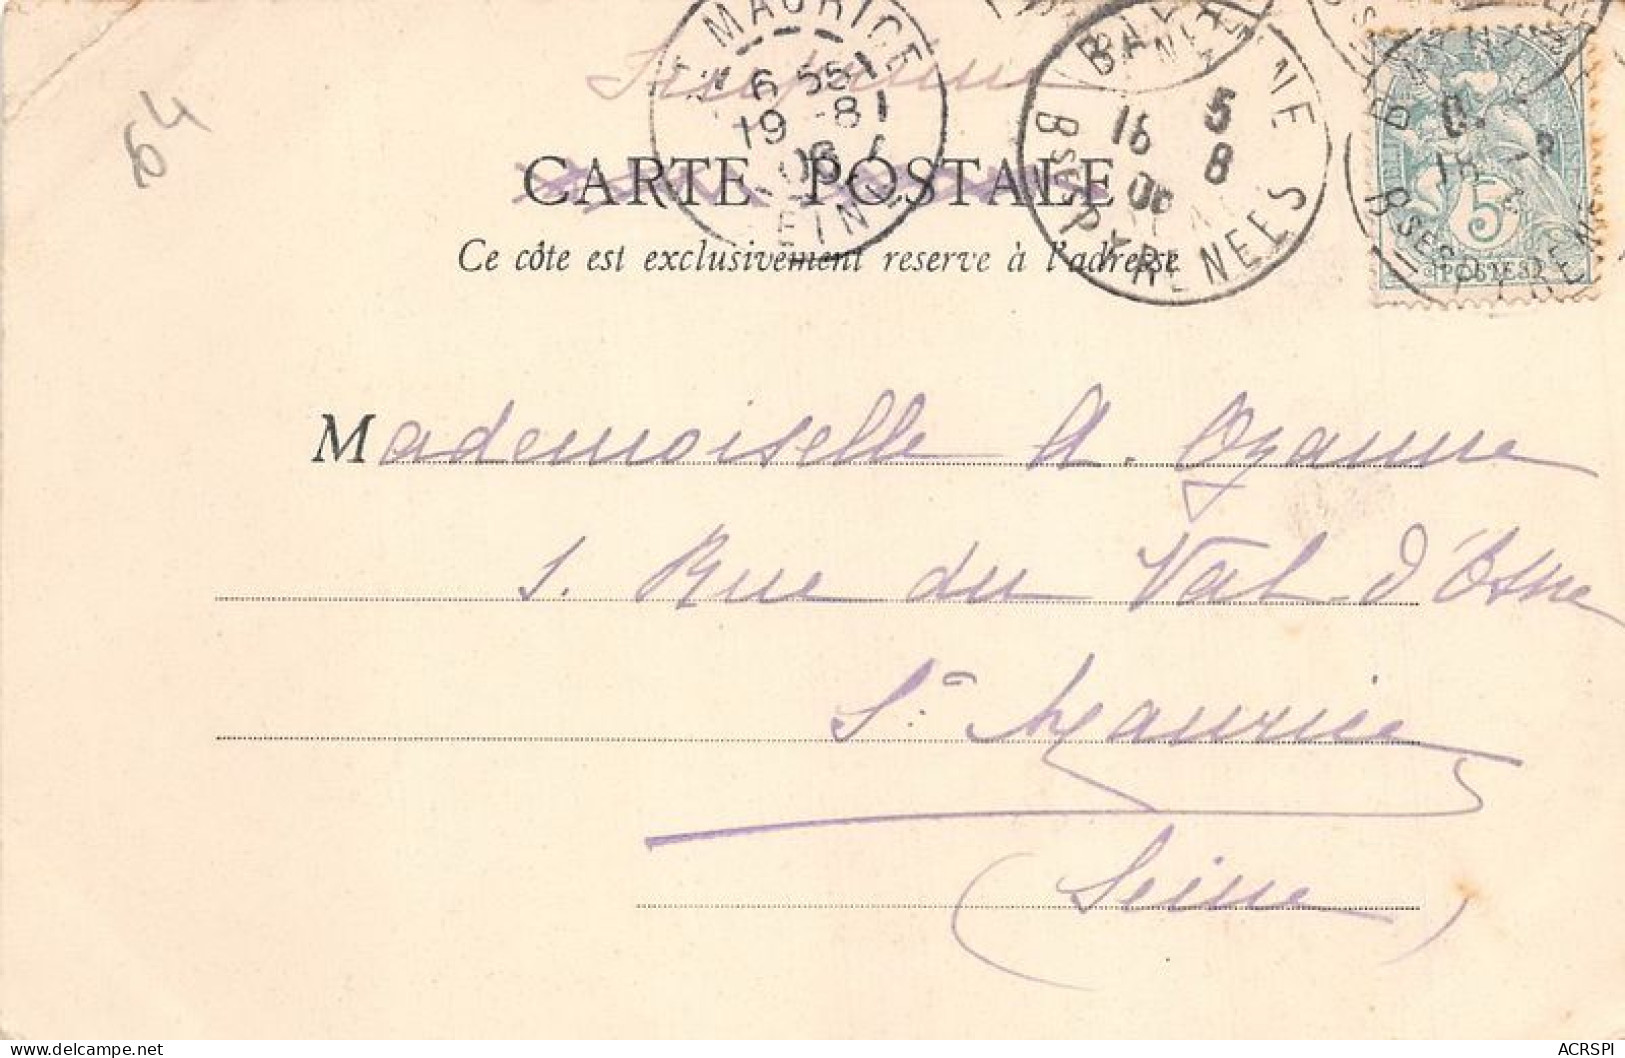 64
Imprimé
ST MAURICE
6 55
19 -8
06
SEINE
BAYONNE
16 5
8
06
BSES PYRENEES
5
POSTES
CARTE POSTALE
Ce côte est exclusivement reserve à l'adresse
Mademoiselle A. Ozanne
1. Rue du Val d'Osne
St Maurice
(Seine)
ACRSPI